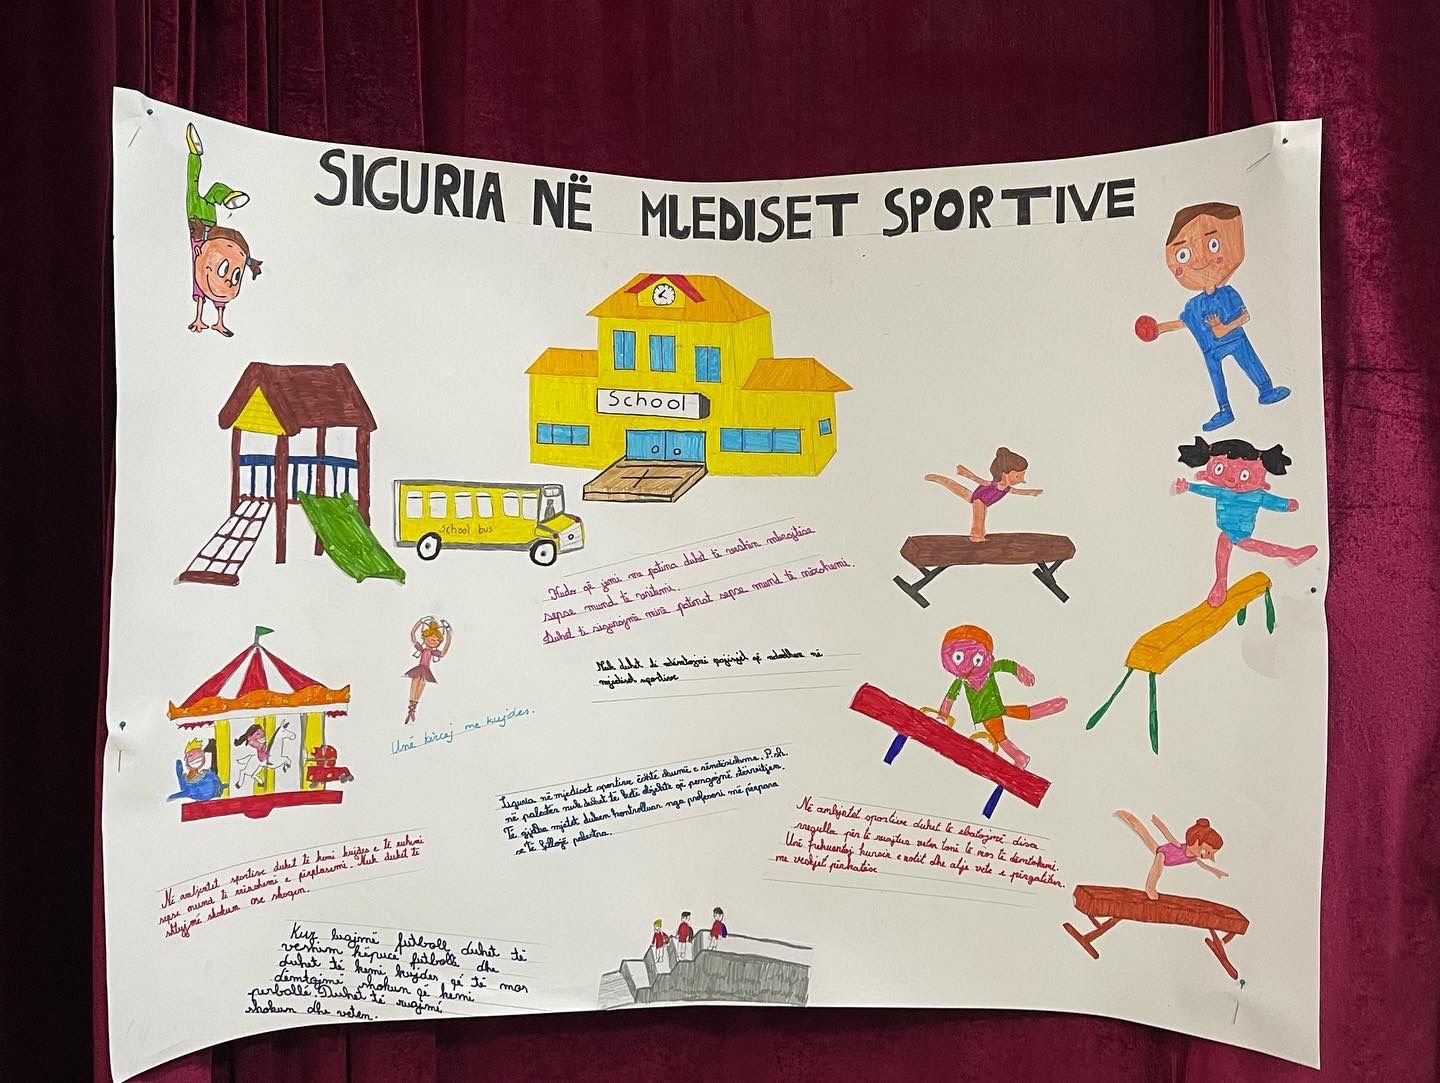 SIGURIA NË MLEDISET SPORTIVE
School
School bus
Kudo që jemi me patina duhet të veshim mbrojtëse
sepse mund të vritemi.
Duhet ti sigurojmë mirë patinat sepse mund të rrëzohemi.
Nuk duhet ti dëmtojmë pajisjet që ndodhen në
mjediset sportive
Unë kërcej me kujdes.
Siguria në mjediset sportive është shumë e rëndësishme. P.sh.
në palester nuk duhet të ketë objekte që pengojnë stërvitjen.
Të gjitha mjetet duhen kontrolluar nga profesori më përpara
se të fillojë palestra.
Në ambjentet sportive duhet të zbatojmë disa
rregulla për të ruajtur veten tonë të mos të dëmtohemi.
Unë frekuentoj kursin e notit dhe atje vete e përgatitur
me veshjet përkatëse
Në ambjentet sportive duhet të kemi kujdes e të ruhemi
sepse mund të rrëzohemi e përplasemi. Nuk duhet të
shtyjmë shokun ose shoqen.
Kur luajmë futboll duhet të
veshim këpucë futbolli dhe
duhet të kemi kujdes që të mos
dëmtojmë shokun që kemi
përballë. Duhet të ruajmë
shokun dhe veten.